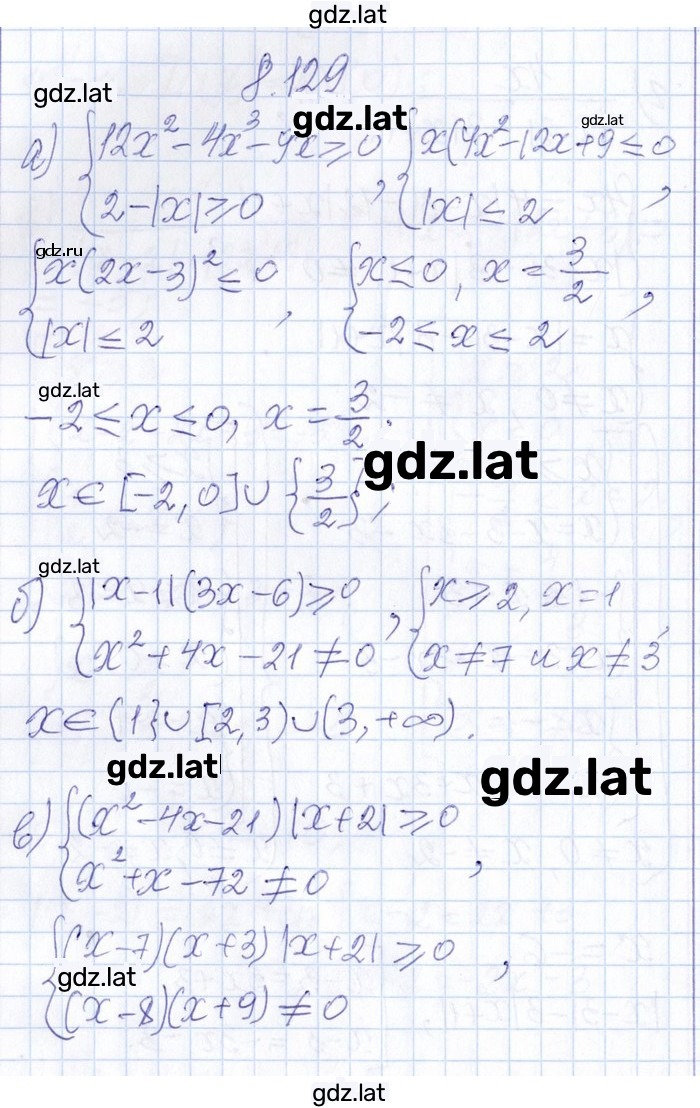 gdz.lat
8.129
gdz.lat
gdz.lat
gdz.lat
а) {12x² - 4x³ - 9x ≥ 0, {x(4x² - 12x + 9 ≤ 0
{2 - |x| ≥ 0 , {|x| ≤ 2 ,
gdz.ru
{x(2x - 3)² ≤ 0 {x ≤ 0, x = 3/2
{|x| ≤ 2 , {-2 ≤ x ≤ 2 ,
gdz.lat
-2 ≤ x ≤ 0, x = 3/2.
gdz.lat
x ∈ [-2, 0] ∪ {3/2};
gdz.lat
б) {|x - 1|(3x - 6) ≥ 0 , {x ≥ 2, x = 1
{x² + 4x - 21 ≠ 0 {x ≠ 7 и x ≠ 3 ,
x ∈ {1} ∪ [2, 3) ∪ (3, +∞).
gdz.lat
gdz.lat
в) {(x² - 4x - 21)|x + 2| ≥ 0
{x² + x - 72 ≠ 0 ,
{(x - 7)(x + 3)|x + 2| ≥ 0
gdz.lat
{(x - 8)(x + 9) ≠ 0 ,
gdz.lat